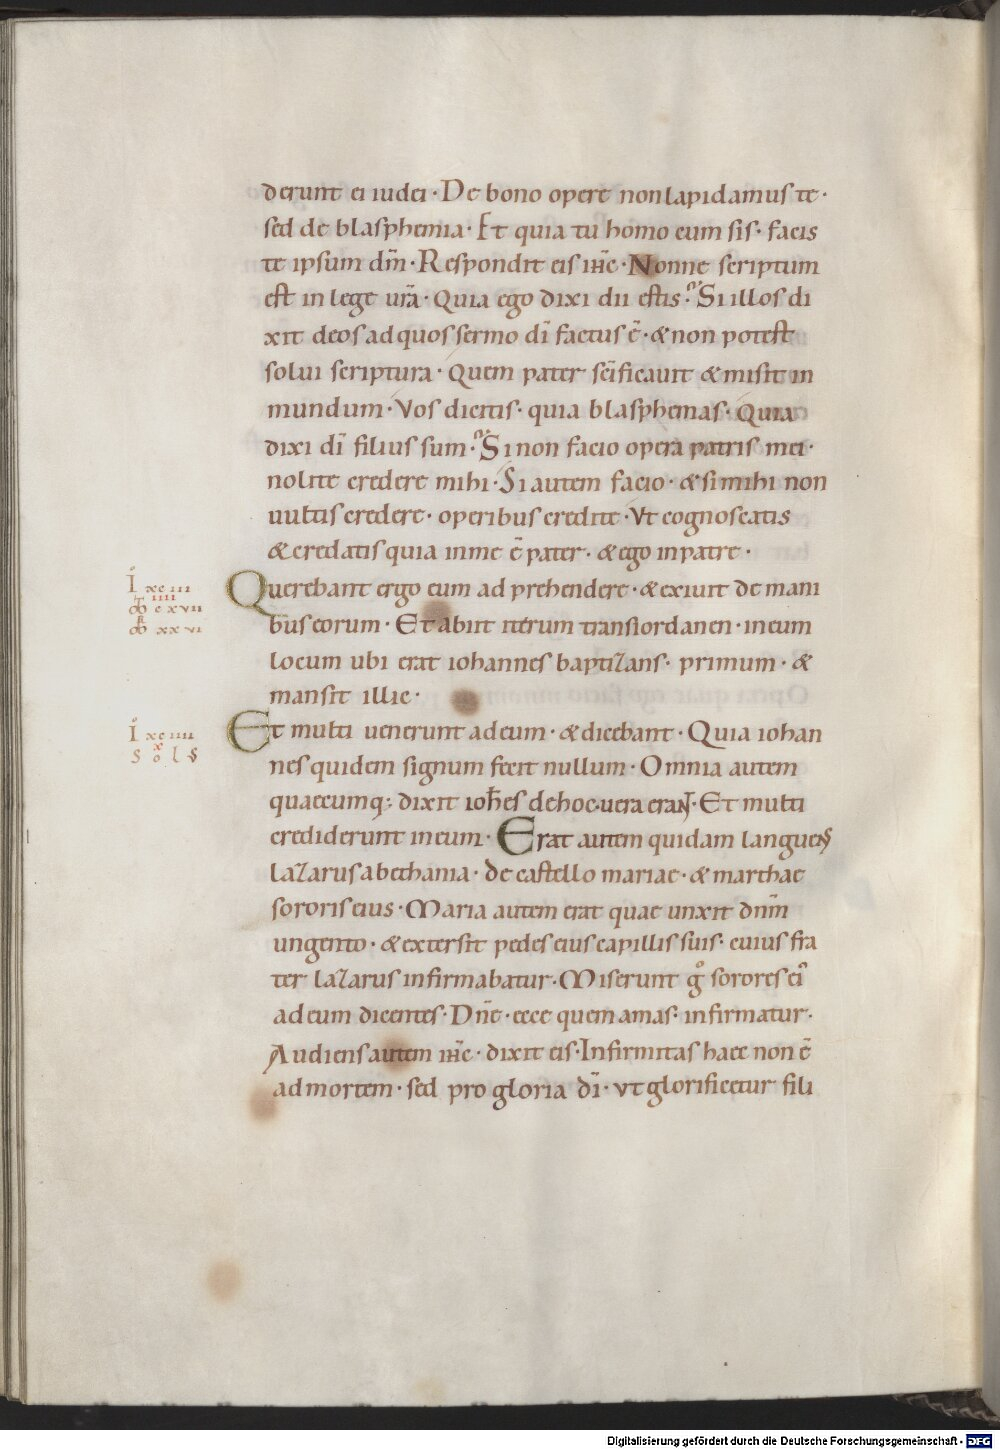 derunt ei iudei · De bono opere non lapidamus te ·
sed de blasphemia · Et quia tu homo cum sis · facis
te ipsum dm̄ · Respondit eis ih̄c · Nonne scriptum
est in lege ur̄a · Quia ego dixi dii estis · Si illos di
xit deos ad quos sermo dī factus ē · & non potest
solui scriptura · Quem pater sc̄ificauit & misit in
mundum · Vos dicitis · quia blasphemas · Quia
dixi dī filius sum · Si non facio opera patris mei ·
nolite credere mihi · Si autem facio · & si mihi non
uultis credere · operibus credite · Vt cognoscatis
& credatis quia in me ē pater · & ego in patre ·
I xciii
Querebant ergo eum adprehendere · & exiuit de mani
bus eorum · Et abiit iterum trans iordanen · in eum
locum ubi erat iohannes baptizans · primum · &
mansit illic ·
I xciiii
Et multi uenerunt ad eum · & dicebant · Quia iohan
nes quidem signum fecit nullum · Omnia autem
quaecumq; dixit ioh̄es de hoc · uera erant · Et multi
crediderunt in eum · Erat autem quidam languens
lazarus a bethania · de castello mariae · & marthae
sororis eius · Maria autem erat quae unxit dn̄m
ungento · & extersit pedes eius capillis suis · cuius fra
ter lazarus infirmabatur · Miserunt g̊ sorores ei'
ad eum dicentes · Dn̄e · ecce quem amas · infirmatur ·
Audiens autem ih̄c · dixit eis · Infirmitas haec non ē
ad mortem · sed pro gloria dī · vt glorificetur fili
Digitalisierung gefördert durch die Deutsche Forschungsgemeinschaft - DFG